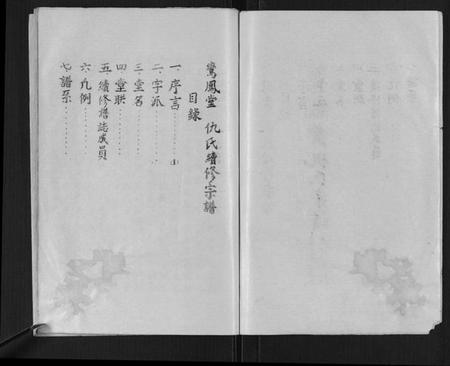 鸞鳳堂 仇氏續修宗譜
目錄
一.序言
二.字派
三.堂名
四.堂联
五.續修譜誌成員
六.凡例
七.譜系